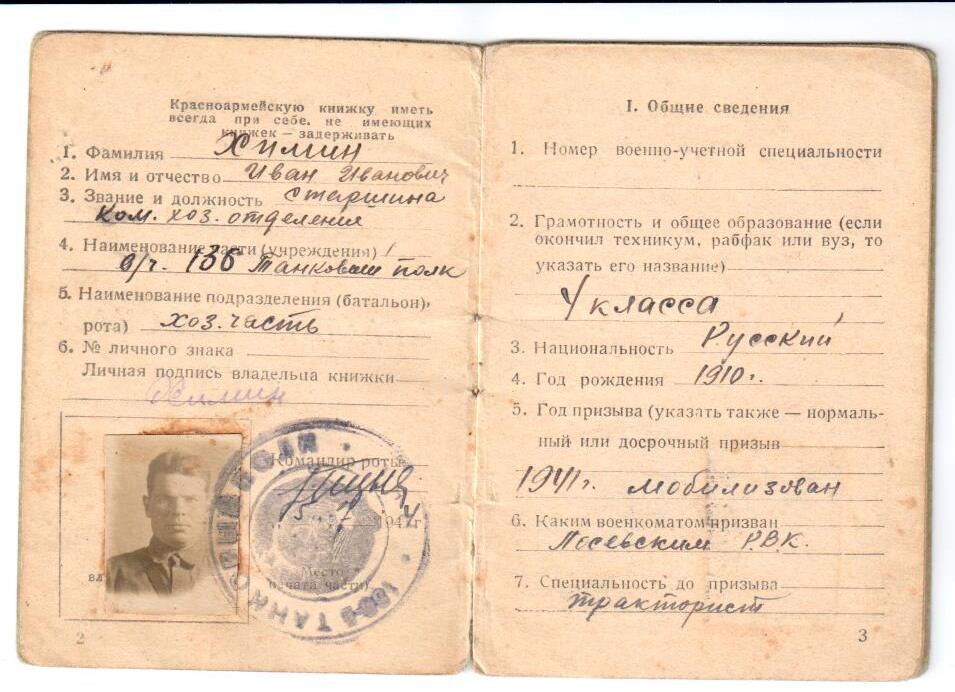 Красноармейскую книжку иметь
всегда при себе. не имеющих
книжек — задерживать
1. Фамилия Химин
2. Имя и отчество Иван Иванович
3. Звание и должность старшина
ком. хоз. отделения
4. Наименование части (учреждения)
в/ч. 136 Танковый полк
5. Наименование подразделения (батальон,
рота) хоз. часть
6. № личного знака
Личная подпись владельца книжки
Химин
Командир роты
5 7 1944 г
Место
печати части)
вл
2
I. Общие сведения
1. Номер военно-учетной специальности
2. Грамотность и общее образование (если
окончил техникум, рабфак или вуз, то
указать его название)
4 класса
3. Национальность Русский
4. Год рождения 1910 г.
5. Год призыва (указать также — нормаль-
ный или досрочный призыв
1941 г. мобилизован
6. Каким военкоматом призван
Лосевским Р.В.К.
7. Специальность до призыва
тракторист
3